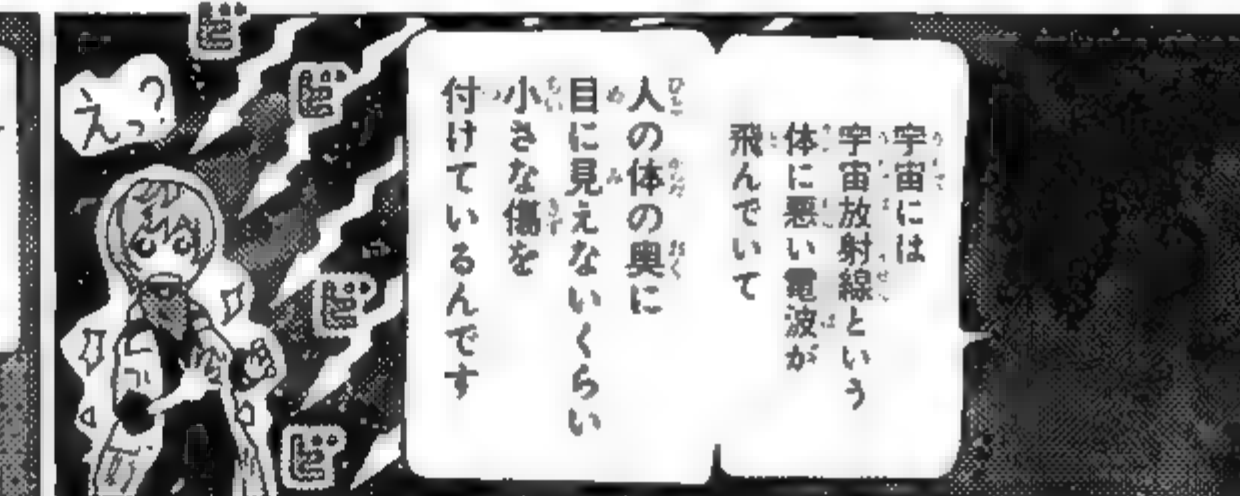 宇宙には
宇宙放射線という
体に悪い電波が
飛んでいて
人の体の奥に
目に見えないくらい
小さな傷を
付けているんです
えっ?
ビ
ビ
ビ
ビ